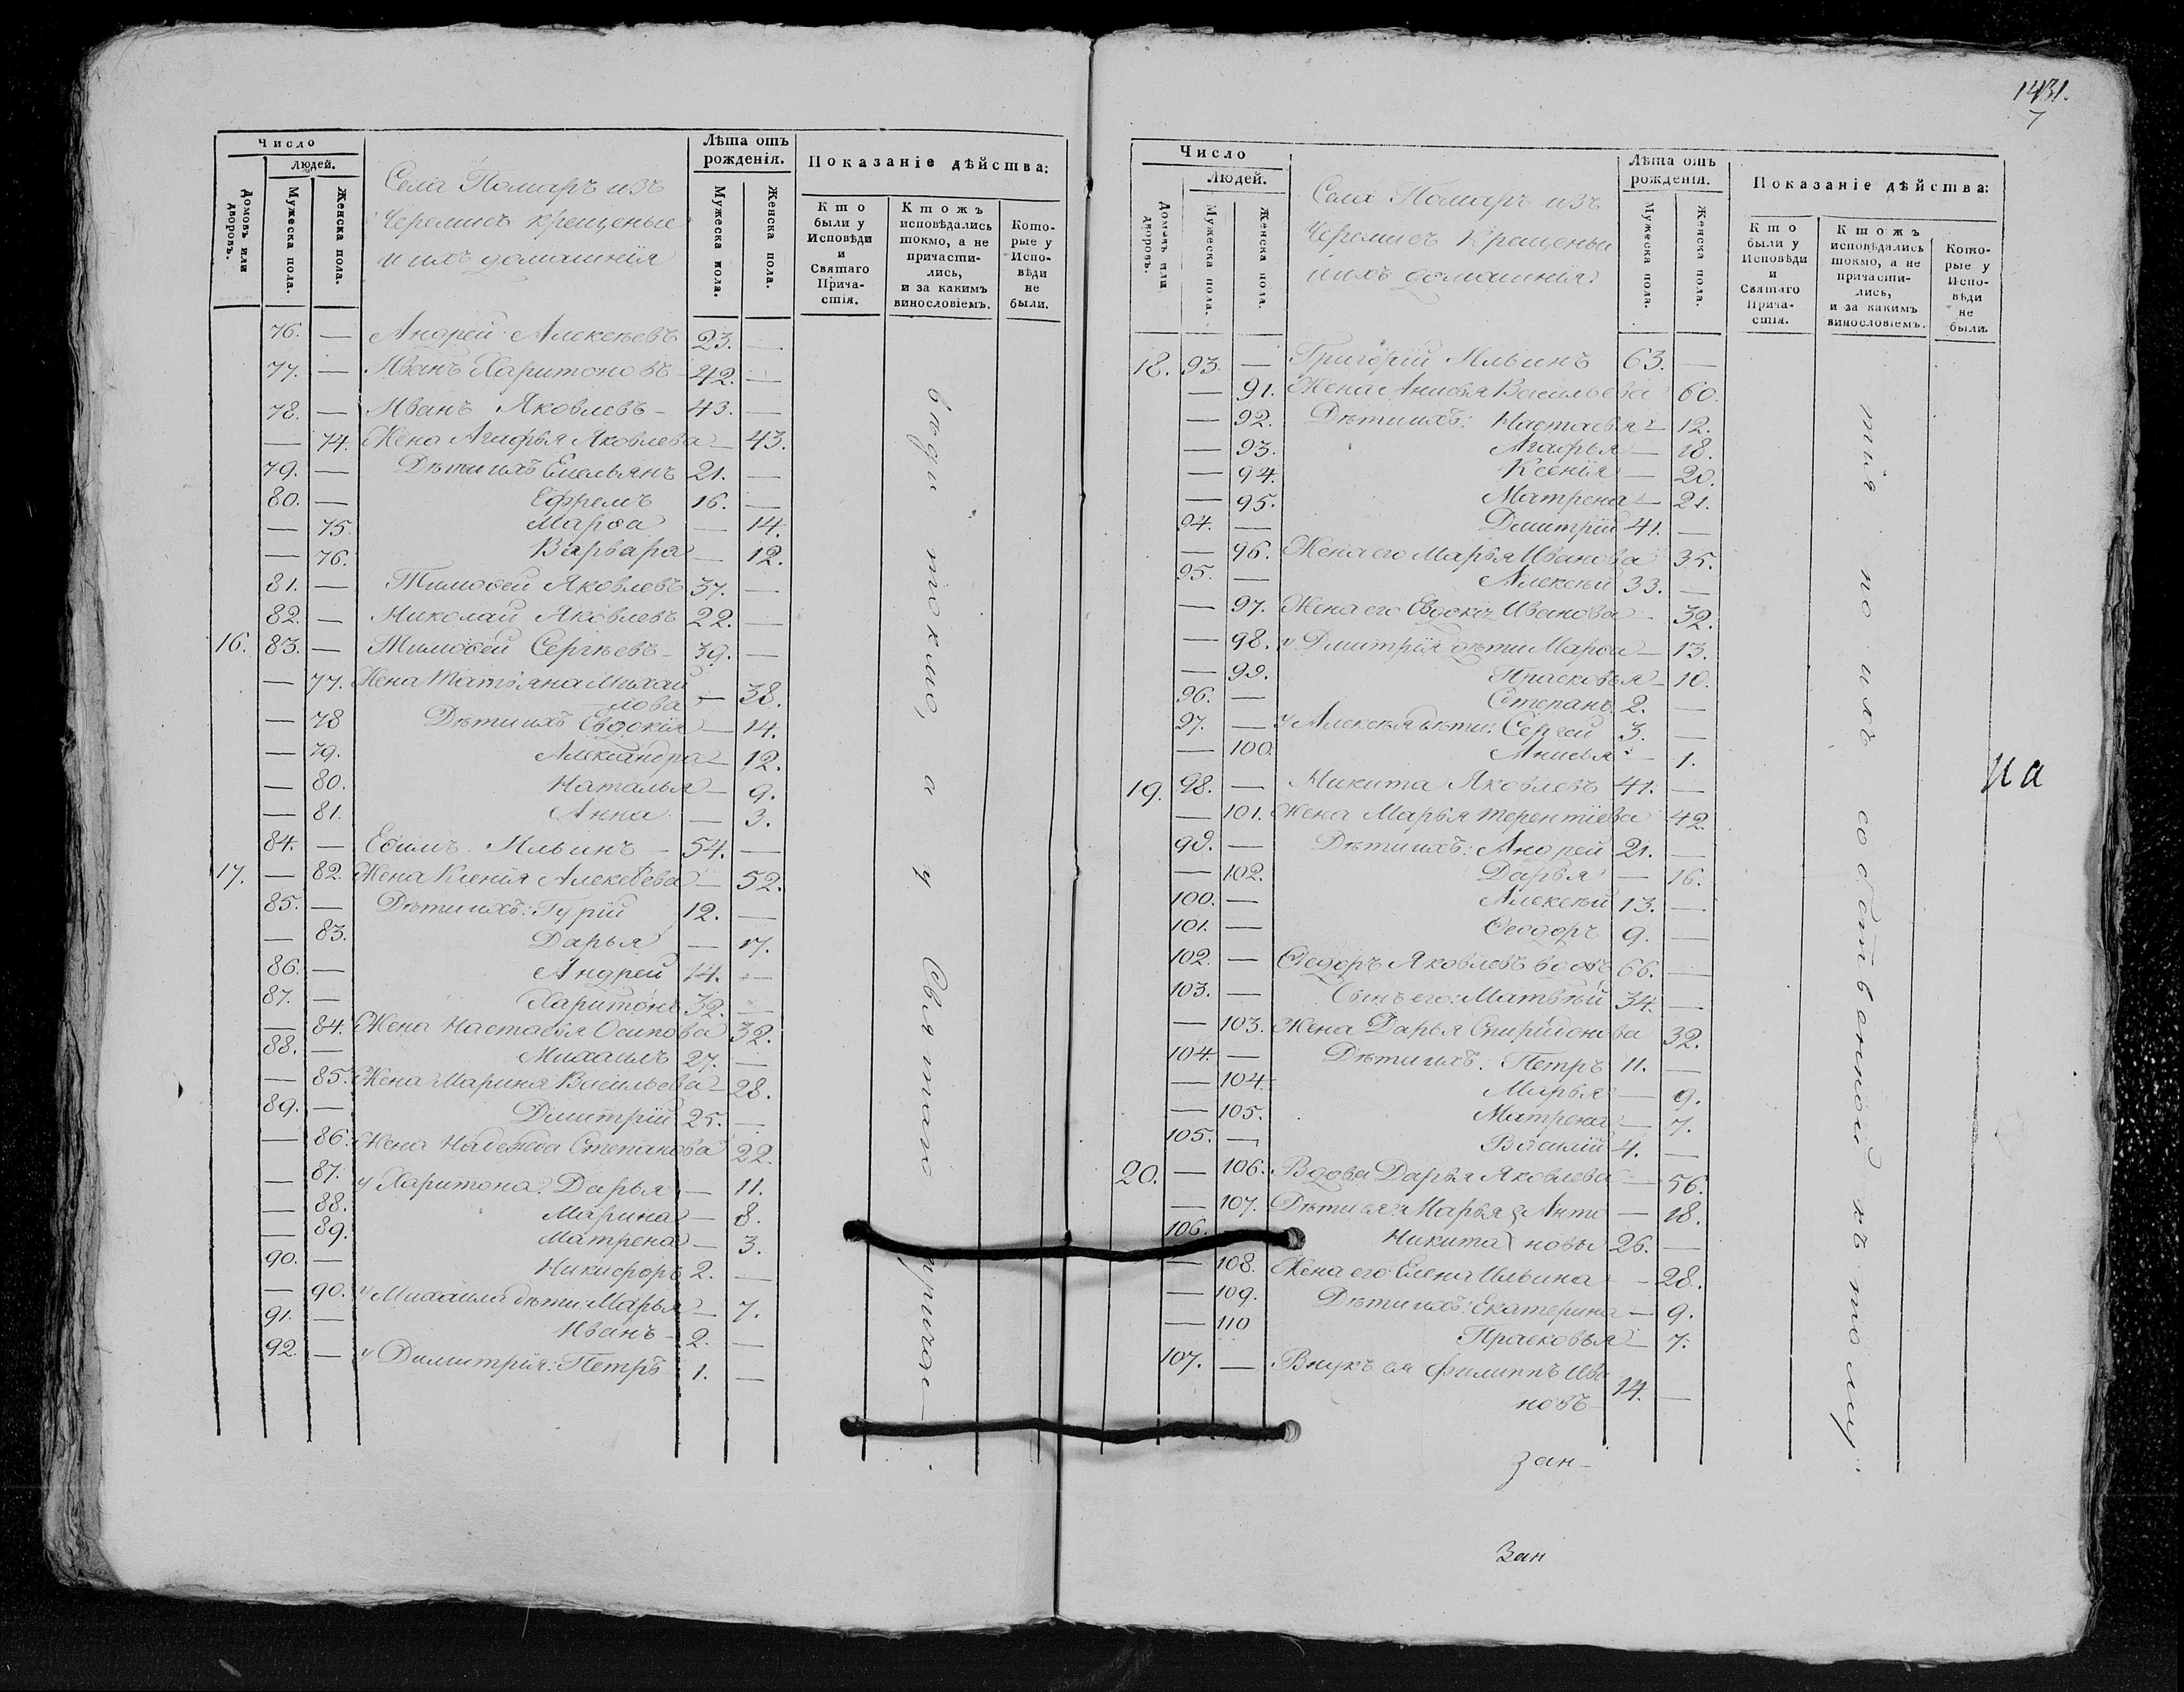 Число
Людей.
Домовъ или дворовъ.
Мужеска пола.
Женска пола.
Села Помаръ изъ
Черемисъ крещеные
и ихъ домашнія
Лѣта отъ рожденія.
Мужеска пола.
Женска пола.
Показаніе дѣйства:
Кто были у Исповѣди и Святаго Причастія.
Ктожъ исповѣдались токмо, а не причастились, и за какимъ винословіемъ.
Которые у Исповѣди не были.
76. — Андрей Алексѣевъ 23. —
77. — Иванъ Харитоновъ 42. —
78. — Иванъ Яковлевъ — 43. —
— 74. Жена Агафья Яковлева — 43.
79. — Дѣти ихъ Емельянъ 21. —
80. — Ефремъ 16. —
— 75. Марѳа — 14.
— 76. Варвара — 12.
81. — Тимоѳей Яковлевъ 37. —
82. — Николай Яковлевъ 22. —
16. 83. — Тимоѳей Сергѣевъ — 39. —
— 77. Жена Татьяна Михай
лова — 38.
— 78 Дѣти ихъ Евдокія — 14.
— 79. Александра — 12.
— 80. Наталья — 9.
— 81. Анна — 3.
84. — Ефимъ Ильинъ — 54. —
17. — 82. Жена Ксенія Алексѣева — 52.
85. — Дѣти ихъ: Гурій 12. —
— 83. Дарья — 17.
86. — Андрей 14. —
87. — Харитонъ 32. —
— 84. Жена Настасья Осипова 32.
88. — Михаилъ 27. —
— 85. Жена Марина Васильева — 28.
89. — Дмитрій 25. —
— 86. Жена Надежда Степанова 22.
— 87. у Харитона: Дарья — 11.
— 88. Марина — 8.
— 89. Матрена — 3.
90. — Никифоръ 2. —
— 90. у Михаила дѣти: Марья — 7.
91. — Иванъ — 2. —
92. — у Димитрія: Петръ 1. —
токмо, а у Святаго причас-
1431.
7
Число
Людей.
Домовъ или дворовъ.
Мужеска пола.
Женска пола.
Села Помаръ изъ
Черемисъ Крещеныи
и ихъ домашнія
Лѣта отъ рожденія.
Мужеска пола.
Женска пола.
Показаніе дѣйства:
Кто были у Исповѣди и Святаго Причастія.
Ктожъ исповѣдались токмо, а не причастились, и за какимъ винословіемъ.
Которые у Исповѣди не были.
18. 93. — Григорій Ильинъ 63. —
— 91. Жена Анисья Васильева 60.
— 92. Дѣти ихъ: Настасья — 12.
— 93. Агафья — 18.
— 94. Ксенія — 20.
— 95. Матрена — 21.
94. — Дмитрій 41. —
— 96. Жена его Марья Иванова 35.
95. — Алексѣй 33. —
— 97. Жена его Евдокія Иванова — 32.
— 98. у Дмитрія дѣти Марѳа — 13.
— 99. Прасковья — 10.
96. — Степанъ 2. —
97. — у Алексѣя дѣти: Сергей 3. —
— 100. Анисья — 1.
19. 98. — Никита Яковлевъ 41. —
— 101. Жена Марья Терентіева 42
99. — Дѣти ихъ: Андрей 21. —
— 102. Дарья — 16.
100. — Алексѣй 13. —
101. — Ѳеодоръ 9. —
102. — Ѳедоръ Яковлевъ вдовъ 66. —
103. — Сынъ его: Матвѣй 34. —
— 103. Жена Дарья Спиридонова 32.
104. — Дѣти ихъ: Петръ 11. —
— 104. Марья — 9.
— 105. Матрена — 7.
105. — Василій 4. —
20. — 106. Вдова Дарья Яковлева — 56.
— 107. Дѣти ея: Марья Анти — 18.
106. Никита новы 26. —
— 108. Жена его Елена Ильина — 28.
— 109. Дѣти ихъ: Екатерина — 9.
— 110 Прасковья — 7.
107. — Внукъ ея Филиппъ Ива
новъ — 14. —
тія по ихъ собственной къ тому
на
зан-
Зан